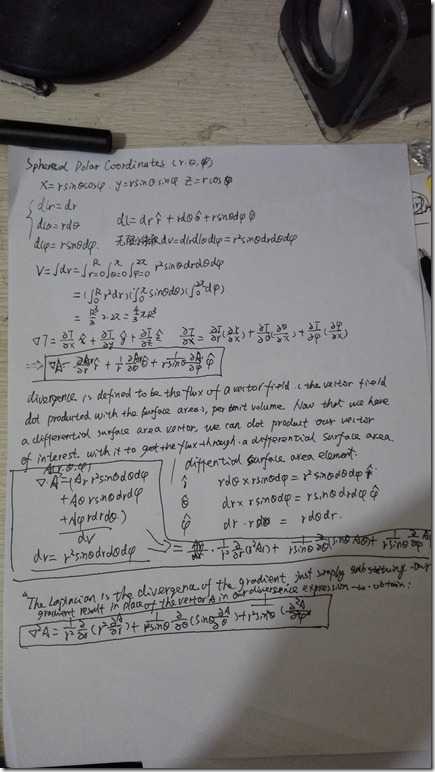 Spherical Polar Coordinates (r, θ, φ)
x = rsinθcosφ. y = rsinθsinφ z = rcosθ
dlr = dr
dlθ = rdθ dl = dr r̂ + rdθ θ̂ + rsinθdφ φ̂
dlφ = rsinθdφ. dv = dlrdlθdlφ = r²sinθdrdθdφ
V = ∫dv = ∫_{r=0}^{R} ∫_{θ=0}^{π} ∫_{φ=0}^{2π} r²sinθdrdθdφ
= (∫_0^R r²dr)(∫_0^π sinθdθ)(∫_0^{2π} dφ)
= R³/3 · 2 · 2π = 4/3 πR³
∇T = ∂T/∂x x̂ + ∂T/∂y ŷ + ∂T/∂z ẑ ∂T/∂x = ∂T/∂r (∂r/∂x) + ∂T/∂θ (∂θ/∂x) + ∂T/∂φ (∂φ/∂x)
=> ∇A = ∂A/∂r r̂ + 1/r ∂A/∂θ θ̂ + 1/rsinθ ∂A/∂φ φ̂
divergence is defined to be the flux of a vector field (the vector field
dot producted with the surface area), per unit volume. Now that we have
a differential surface area vector, we can dot product our vector
of interest with it to get the flux through a differential surface area.
A(r, θ, φ) differential surface area element.
∇·A = (Ar r²sinθdθdφ r̂ rdθ x rsinθdφ = r²sinθdθdφ r̂
+ Aθ rsinθdrdφ θ̂ dr x rsinθdφ = rsinθdrdφ
+ Aφ rdrdθ) φ̂ dr · rdθ = rdθdr.
dv
dv = r²sinθdrdθdφ => = 1/r² ∂/∂r (r²Ar) + 1/rsinθ ∂/∂θ (sinθ Aθ) + 1/rsinθ ∂/∂φ
"The Laplacian is the divergence of the gradient, just simply substituting our
gradient result in place of the vector A in our divergence expression to obtain:
∇²A = 1/r² ∂/∂r (r² ∂A/∂r) + 1/r²sinθ ∂/∂θ (sinθ ∂A/∂θ) + 1/r²sin²θ (∂²A/∂φ²)